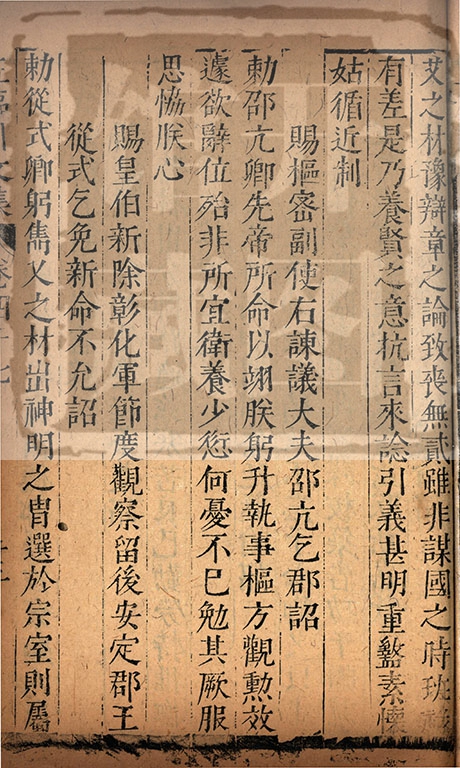 艾之材豫辯章之論致喪無貳雖非謀國之時珫
有差是乃養賢之意抗言來諗引義甚明重盭素懷
姑循近制
賜樞密副使右諫議大夫邵亢乞郡詔
勅邵亢卿先帝所命以翊朕躬升執事樞方觀勲效
遽欲辭位殆非所宜衛養少愆何憂不已勉其厥服
思恊朕心
賜皇伯新除彰化軍節度觀察留後安定郡王
從式乞免新命不允詔
勅從式卿躬雋乂之材出神明之胄選於宗室則屬
王臨川文集 卷四十七